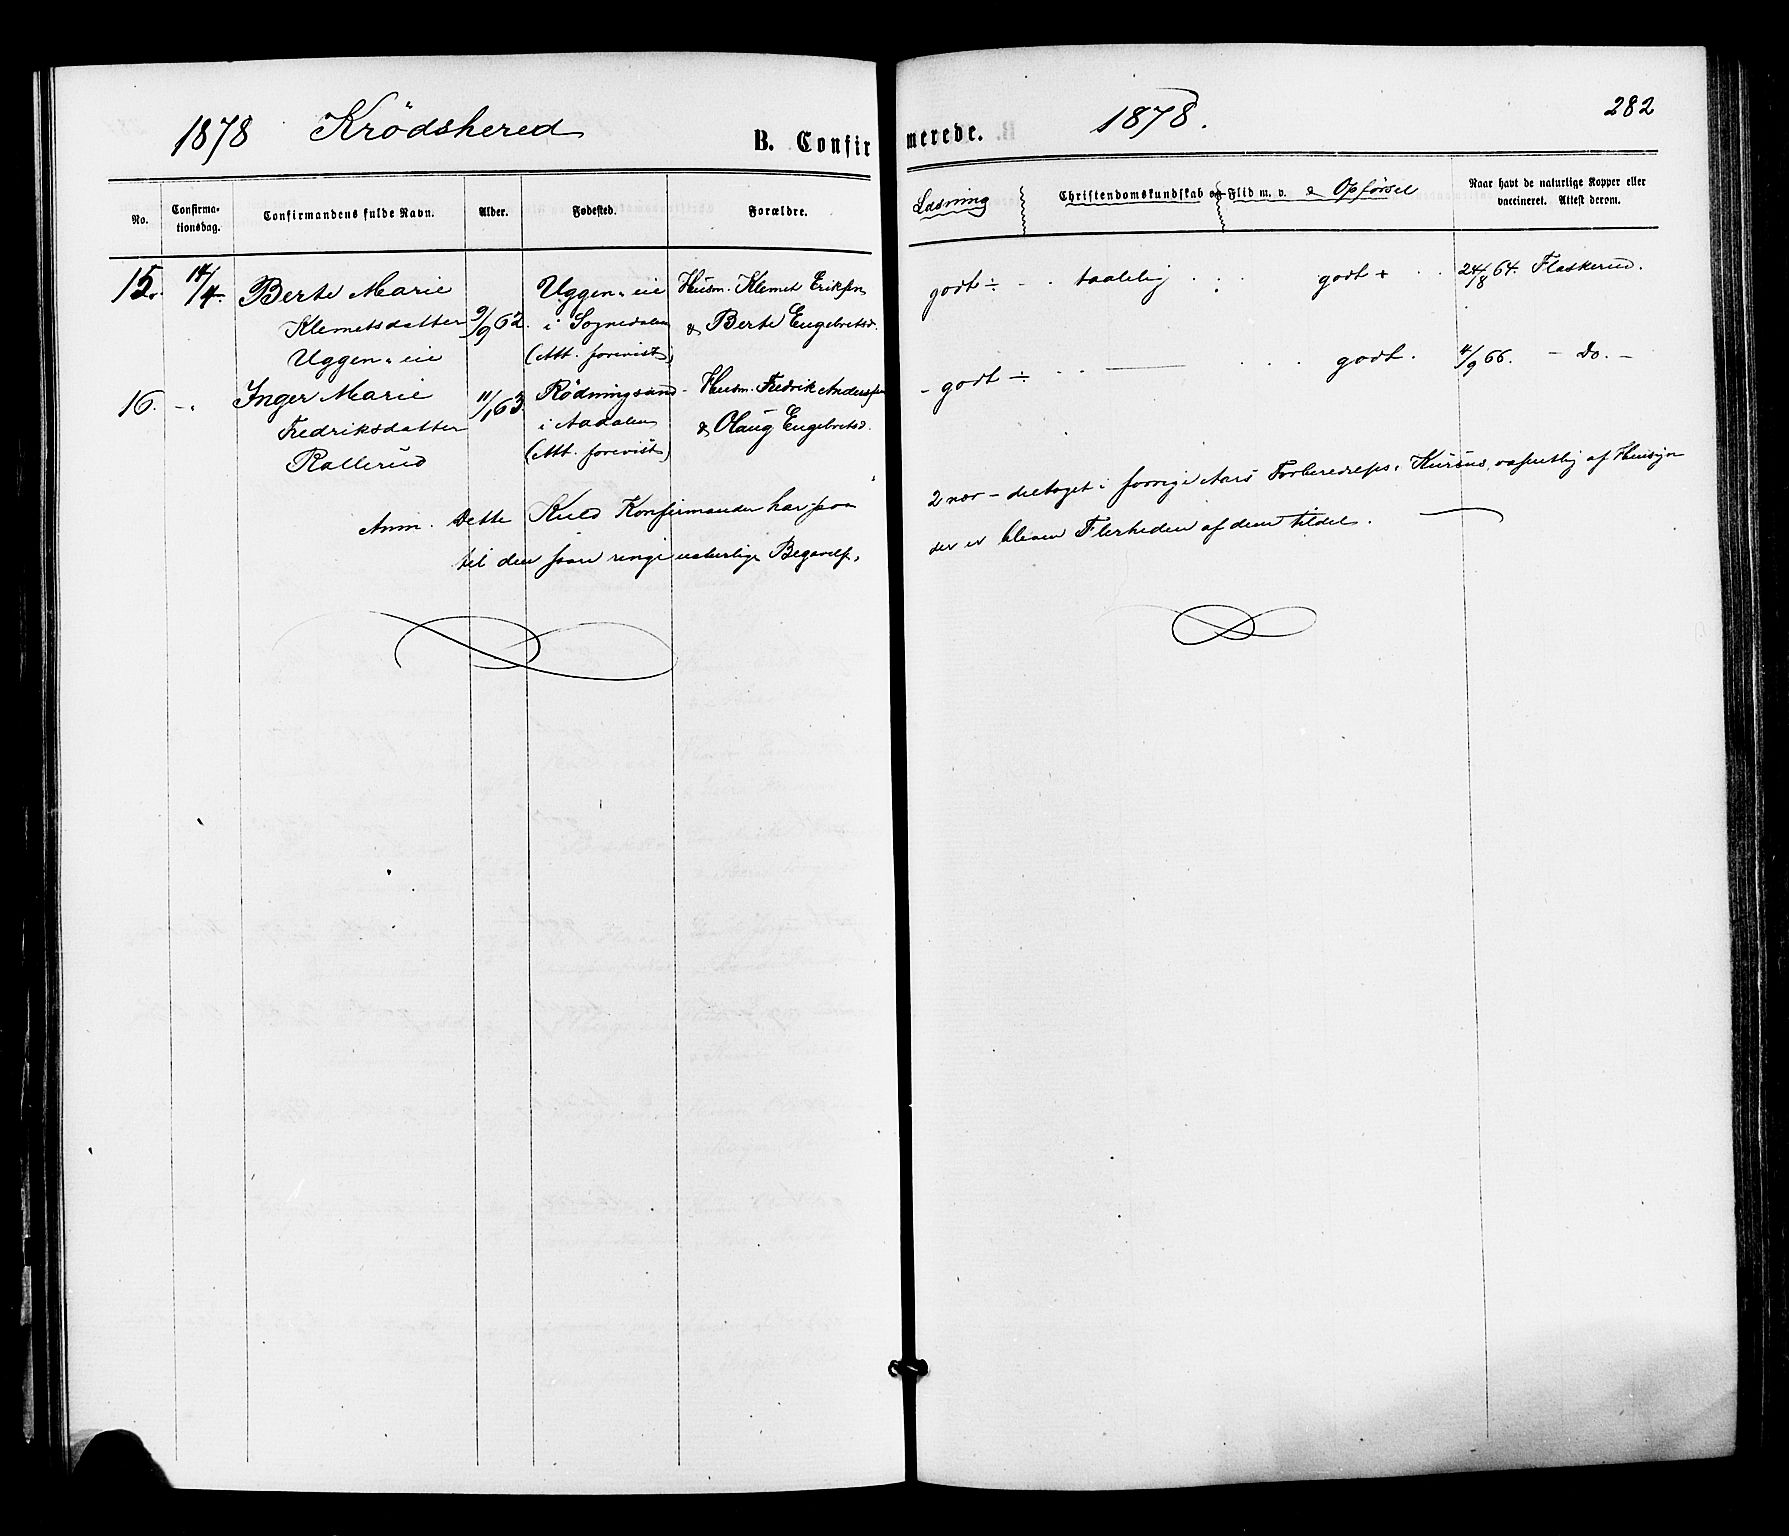 1878 Krödshered
B. Confir
merede.
1878.
282
No.
Confirma-
tionsdag.
Confirmandens fulde Navn.
Alder.
Fødested.
Forældre.
Læsning
Christendomskundskab og Flid m. v. & Opførsel
Naar havt de naturlige Kopper eller
vaccineret. Attest derom.
15. 14/4. Berte Marie
Klemetsdatter
Uggen-eie
9/9 62.
Uggen-eie
i Sognedalen
(Att. forevist)
Husm. Klemet Eriksen
& Berte Engebretsd.
godt ÷ taalelig godt + 24/8 64. Flaskerud.
16. -"- Inger Marie
Fredriksdatter
Rallerud
11/1 63.
Rödningsand
i Aadalen
(Att. forevist)
Husm. Fredrik Anderssen
& Olaug Engebretsd.
- godt ÷ — godt. 4/9 66. - Do. -
Anm. Dette Kuld Konfirmander har paa
2 nær - deltaget i forrige Aars Forberedelses-Kursus, væsentlig af Hensyn
til den saare ringe naturlige Begavelse,
der er bleven Flerheden af dem tildel.